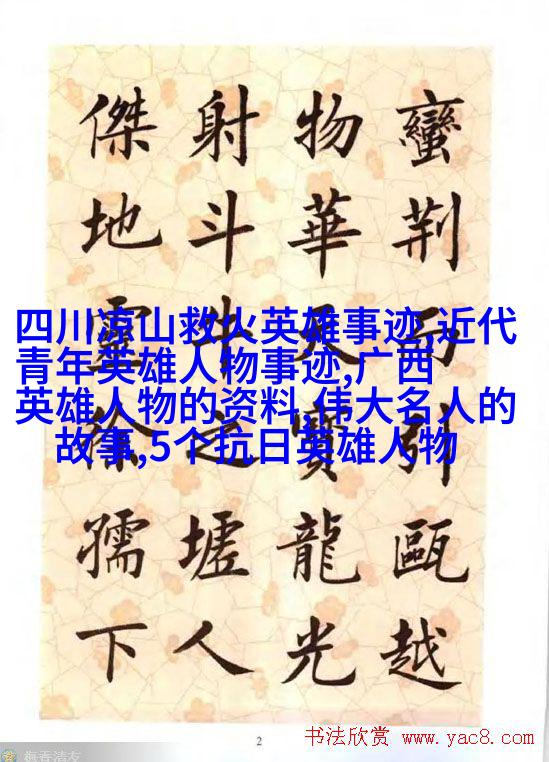 蠻荊而引甌越
物華天寶龍光
射斗牛之墟人
傑地靈徐孺下
四川凉山救火英雄事迹,近代
青年英雄人物事迹,广西
英雄人物的资料,伟大名人的
故事,5个抗日英雄人物
2
书法欣赏 www.yac8.com
梅香清友